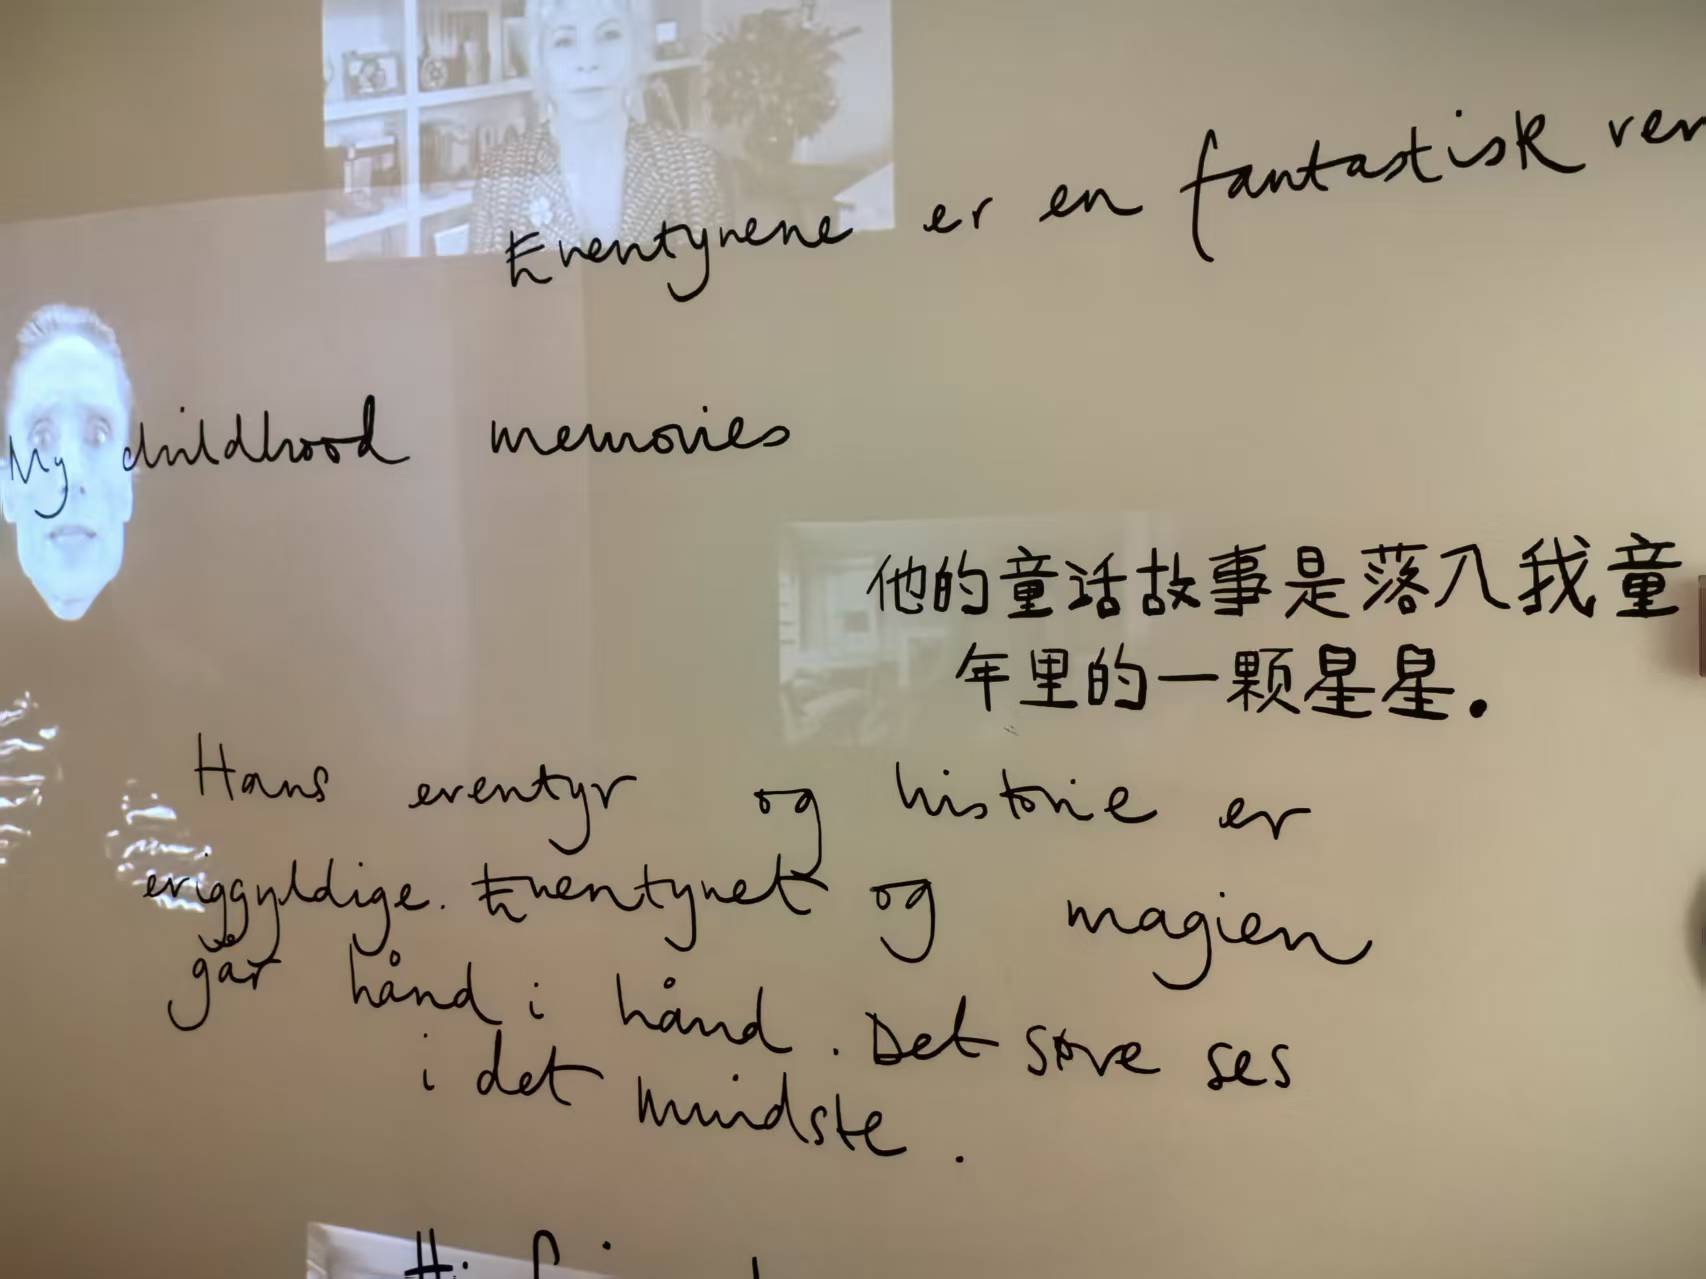 Eventyrene er en fantastisk ver
My childhood memories
他的童话故事是落入我童
年里的一颗星星.
Hans eventyr og historie er
eviggyldige. Eventyret og magien
går hånd i hånd. Det støre ses
i det mindste.